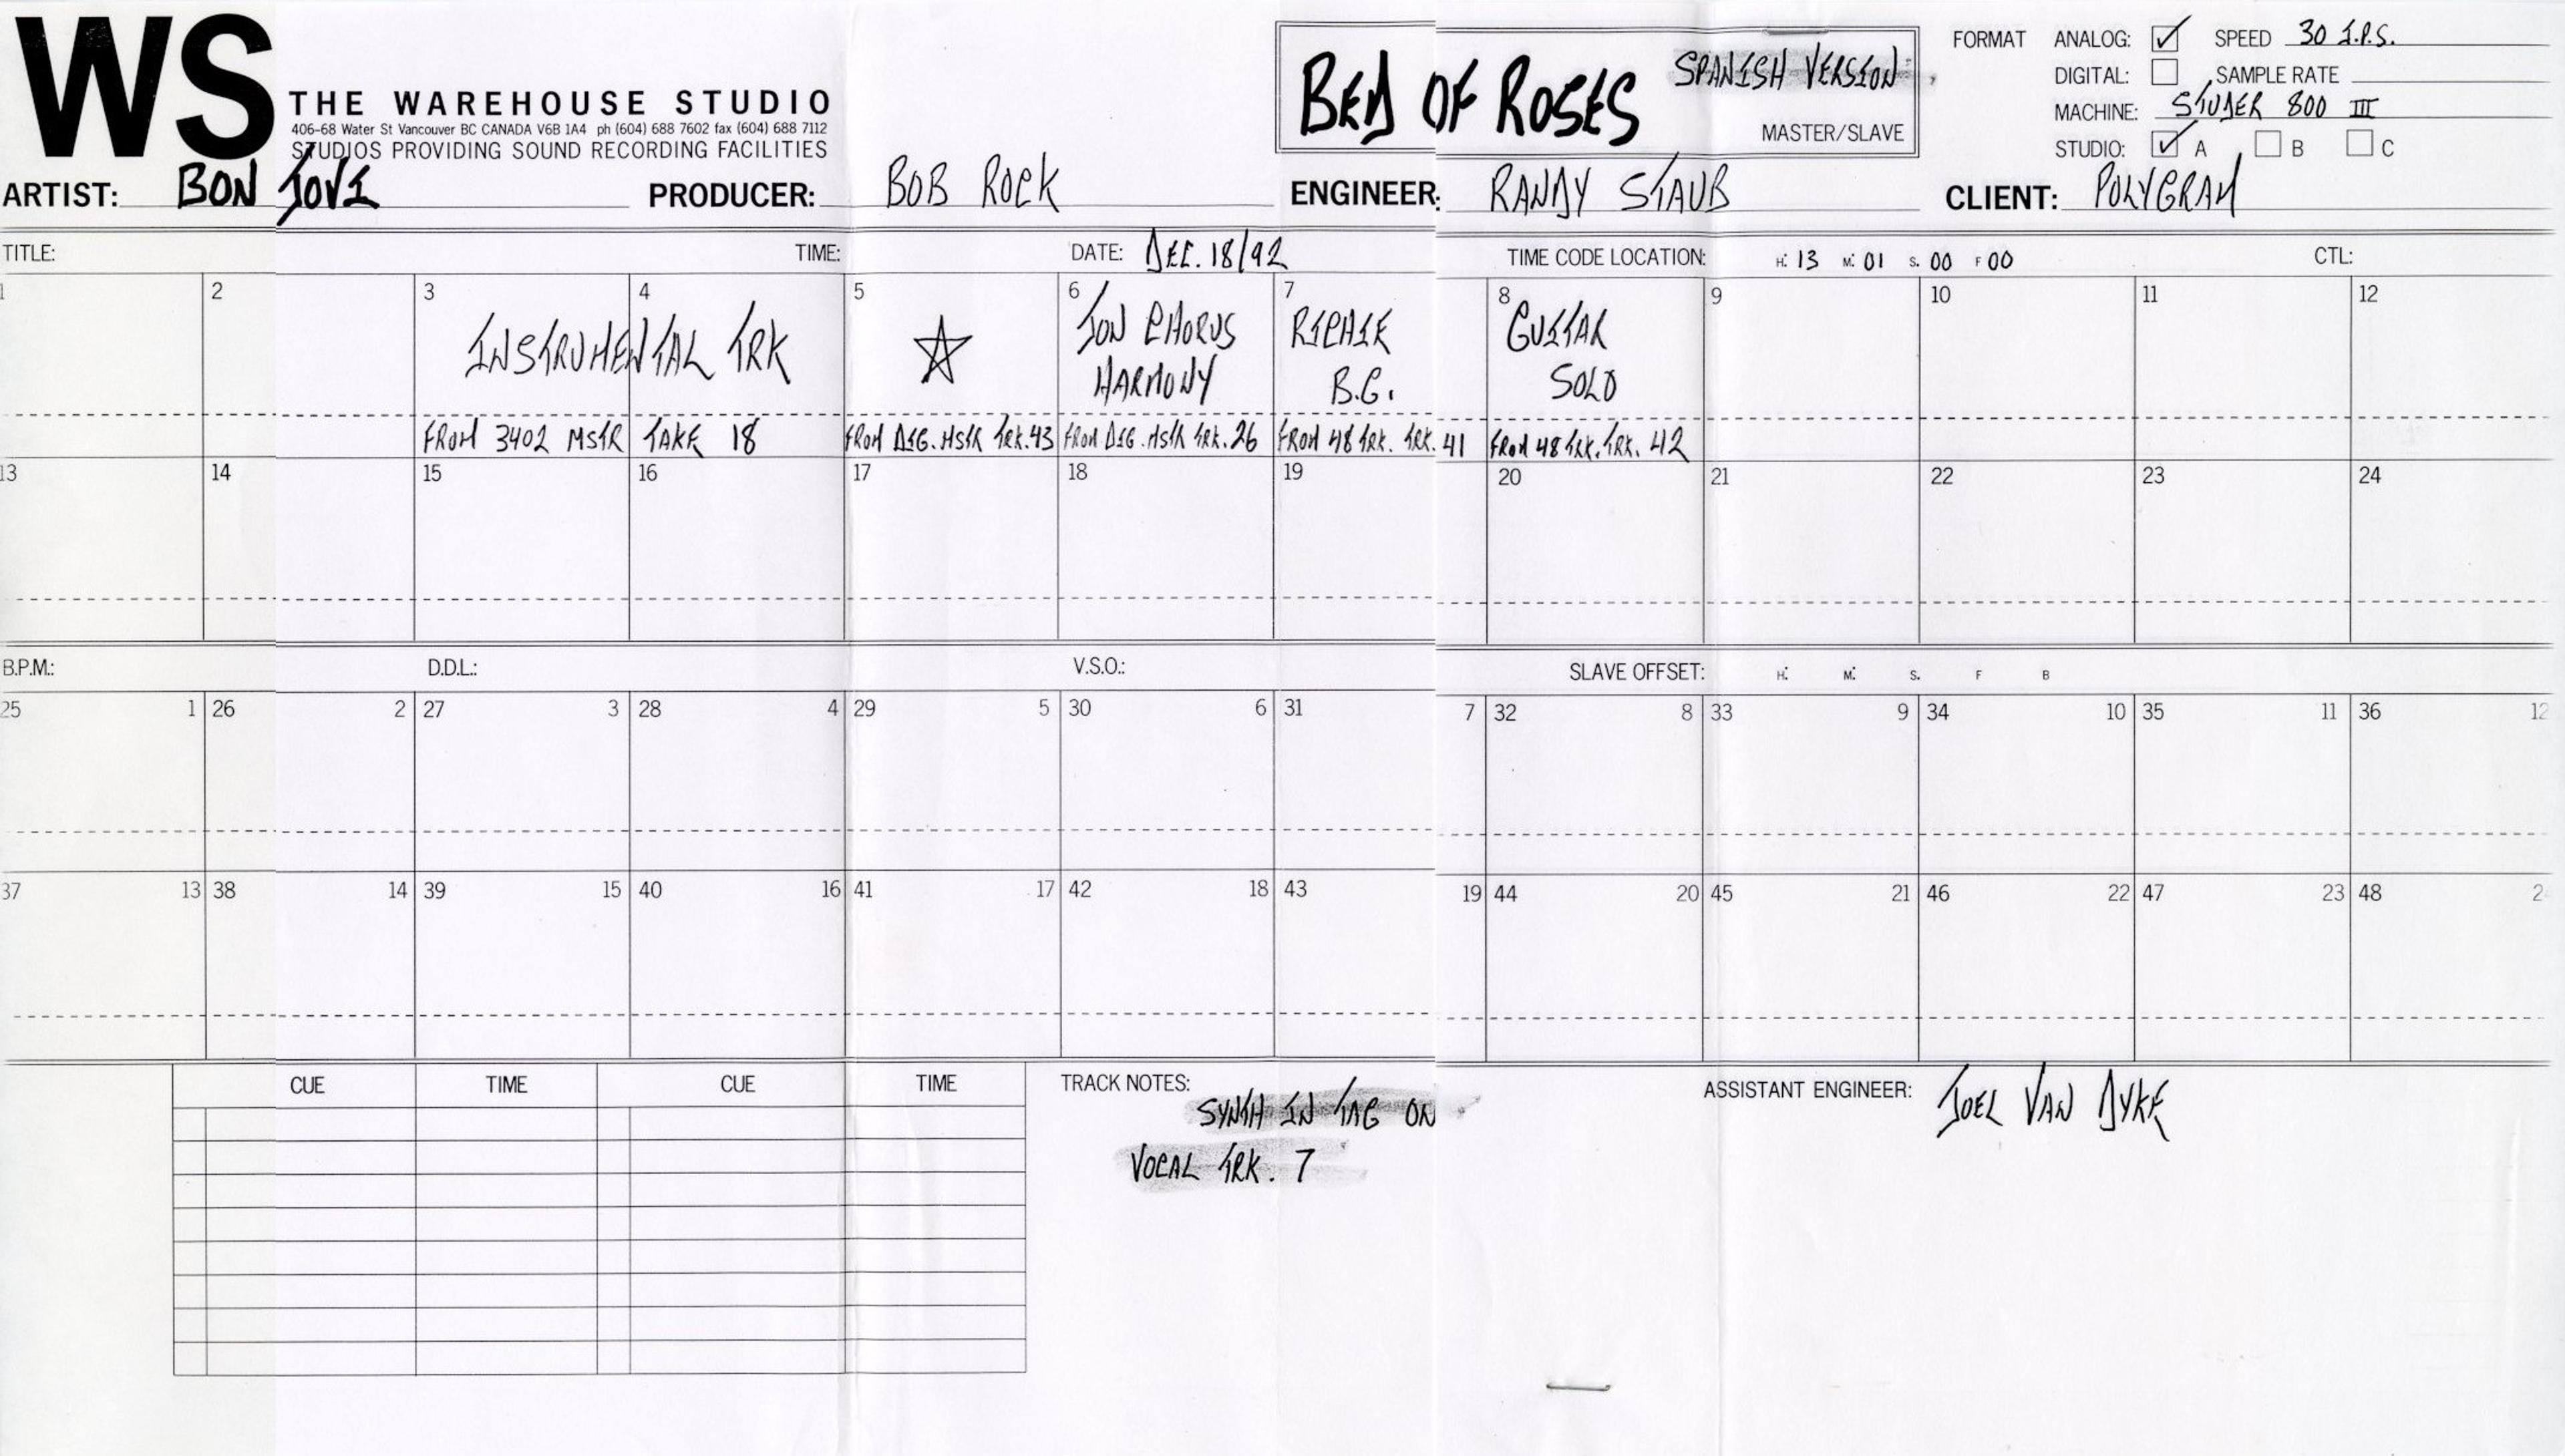 WS
THE WAREHOUSE STUDIO
406-68 Water St Vancouver BC CANADA V6B 1A4 ph (604) 688 7602 fax (604) 688 7112
STUDIOS PROVIDING SOUND RECORDING FACILITIES
BED OF ROSES SPANISH VERSION
MASTER/SLAVE
FORMAT ANALOG: ✓ SPEED 30 I.P.S.
DIGITAL: SAMPLE RATE
MACHINE: STUDER 800 III
STUDIO: ✓ A B C
ARTIST: BON JOVI PRODUCER: BOB ROCK ENGINEER: RANDY STAUB CLIENT: POLYGRAM
TITLE: TIME: DATE: DEC. 18/92 TIME CODE LOCATION: H: 13 M: 01 S. 00 F 00 CTL:
1 2 3 4 5 6 7 8 9 10 11 12
INSTRUMENTAL TRK ☆ JON CHORUS RICHIE GUITAR
HARMONY B.G. SOLO
FROM 3402 MSTR TAKE 18 FROM DIG. MSTR TRK. 43 FROM DIG. MSTR TRK. 26 FROM 48 TRK. TRK. 41 FROM 48 TRK. TRK. 42
13 14 15 16 17 18 19 20 21 22 23 24
B.P.M.: D.D.L.: V.S.O.: SLAVE OFFSET: H: M: S. F B
25 1 26 2 27 3 28 4 29 5 30 6 31 7 32 8 33 9 34 10 35 11 36 12
37 13 38 14 39 15 40 16 41 17 42 18 43 19 44 20 45 21 46 22 47 23 48
CUE TIME CUE TIME
TRACK NOTES:
SYNTH IN TAG ON
VOCAL TRK. 7
ASSISTANT ENGINEER: JOEL VAN DYKE